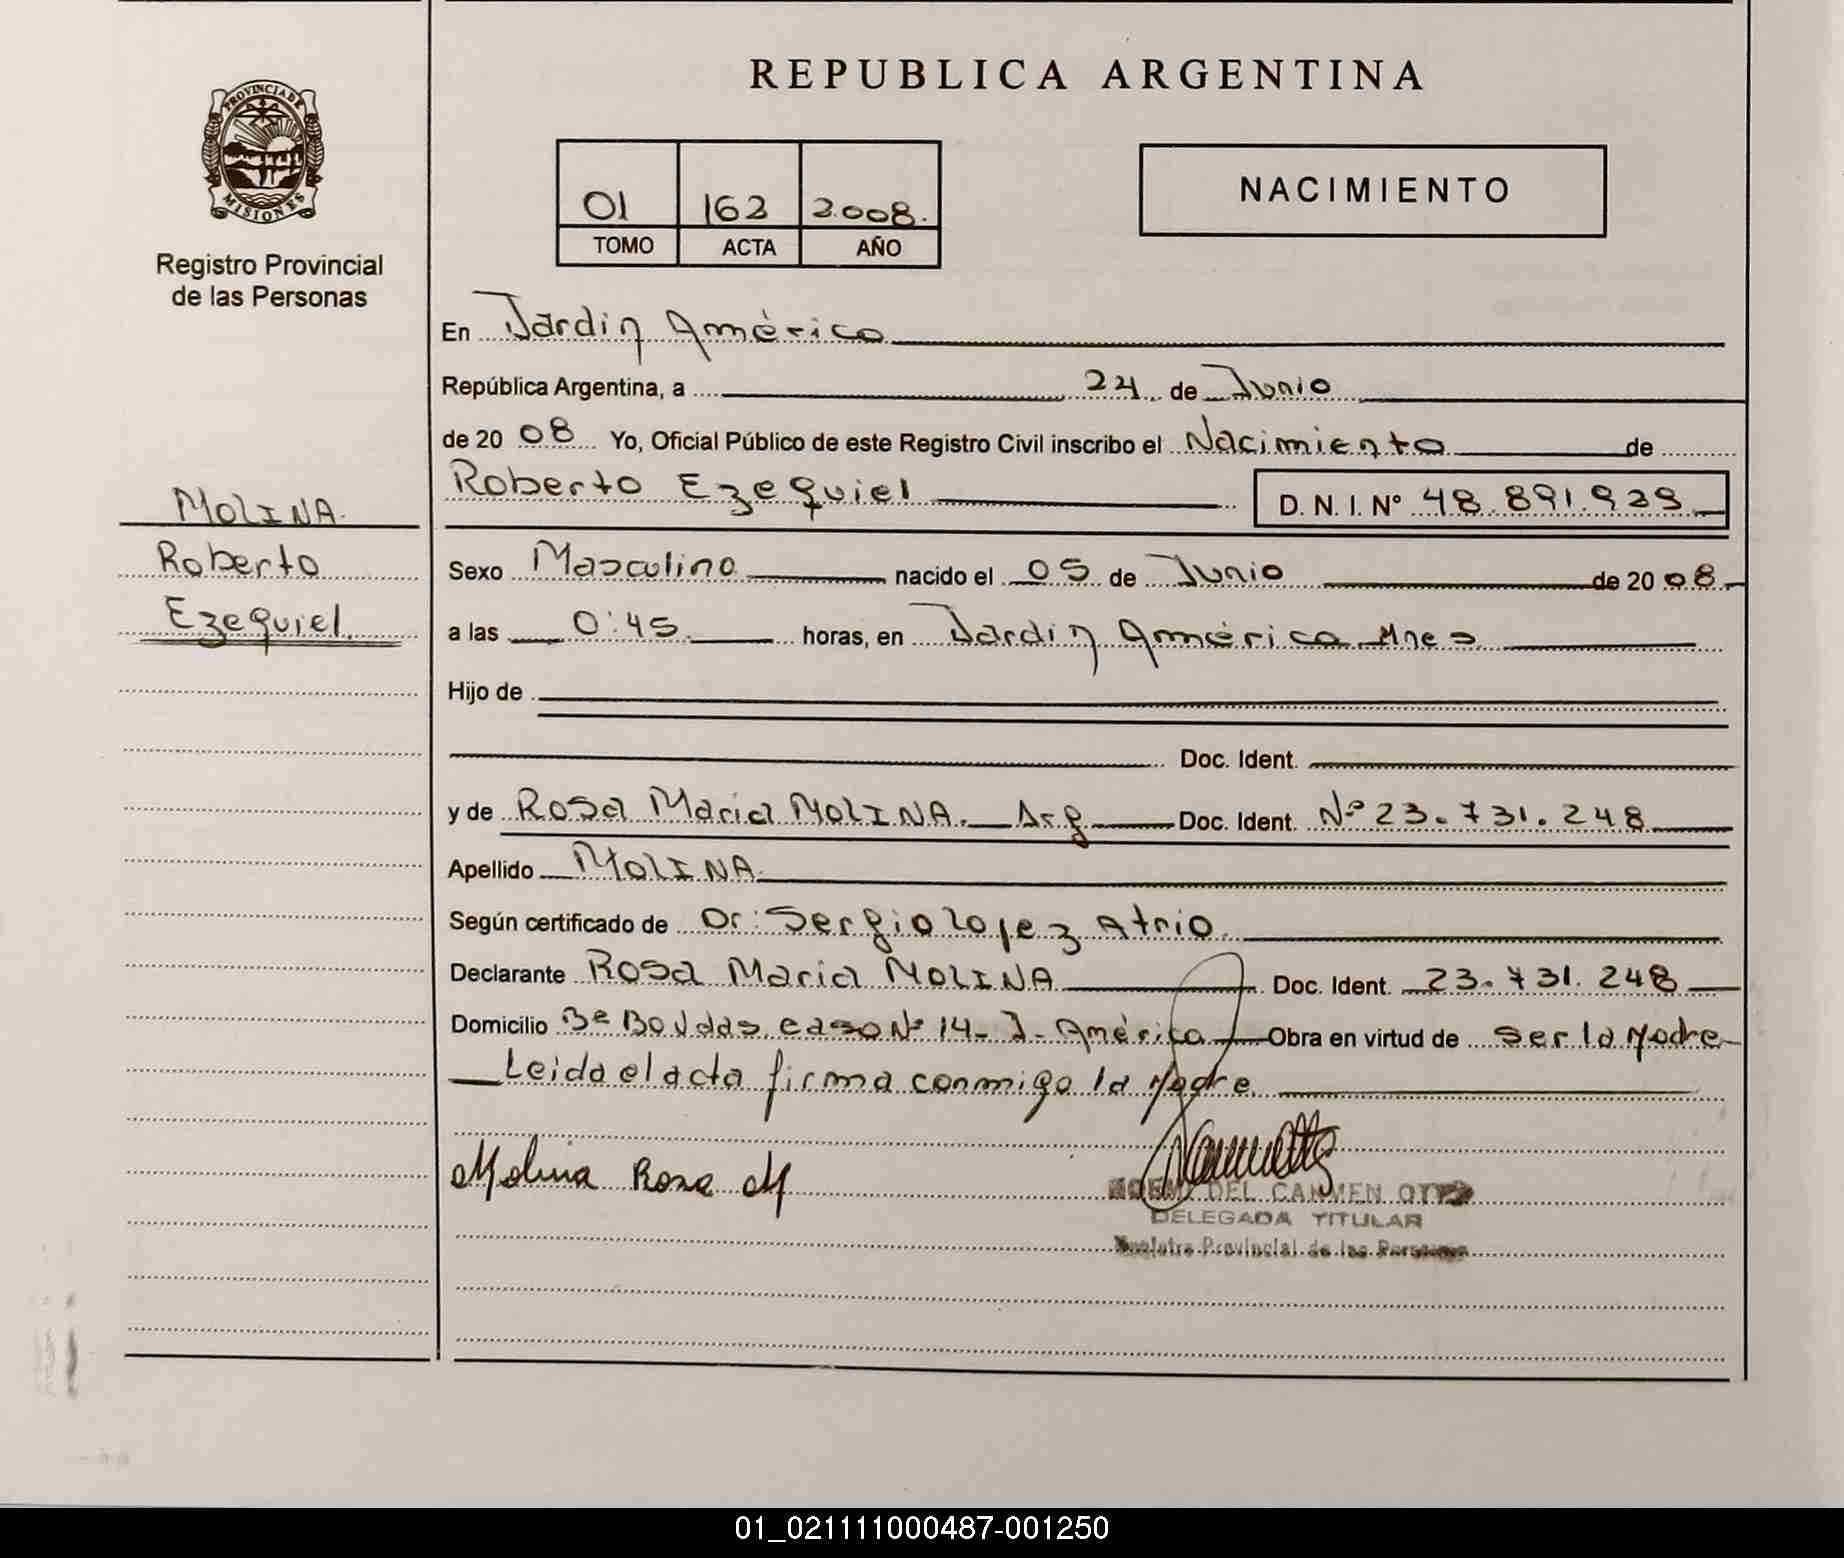 PROVINCIA DE
MISIONES
Registro Provincial
de las Personas
MOLINA
Roberto
Ezequiel.
REPUBLICA ARGENTINA
01 162 2.008.
TOMO ACTA AÑO
NACIMIENTO
En Jardin América
República Argentina, a 24 de Junio
de 20 08 Yo, Oficial Público de este Registro Civil inscribo el Nacimiento de
Roberto Ezequiel D. N. I. Nº 48.891.929
Sexo Masculino nacido el 05 de Junio de 20 08
a las 0:45 horas, en Jardin América Mnes
Hijo de
Doc. Ident.
y de Rosa Maria MOLINA. Arg Doc. Ident. Nº 23.731.248
Apellido MOLINA
Según certificado de Dr: Sergio Lopez Atrio
Declarante Rosa Maria MOLINA Doc. Ident. 23.731.248
Domicilio Bº casa Nº 14- J- América Obra en virtud de ser la Madre
Leida el acta firma conmigo la Madre
Molina Rosa M
DEL CARMEN OTTO
DELEGADA TITULAR
Registro Provincial de las Personas
01_021111000487-001250